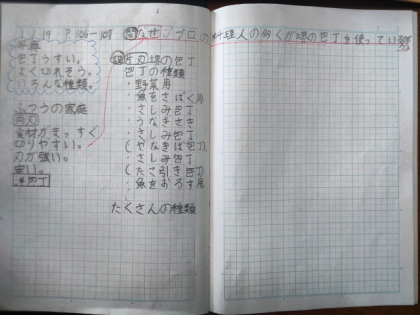 1/19 P.106-109
問なぜ、プロの料理人の多くが堺の包丁を使っているか
写真
包丁うすい。
よく切れそう。
いろんな種類。
ふつうの家庭
両刃
食材がまっすぐ
切りやすい。
刃が強い。
安い。
洋包丁
片刃 堺の包丁
包丁の種類
・野菜用
・魚をさばく用
・さしみ包丁
・うなぎさき
・さしみ包丁
(やなぎば包丁)
・さしみ包丁
(たこ引き包丁)
・魚をおろす用
たくさんの種類